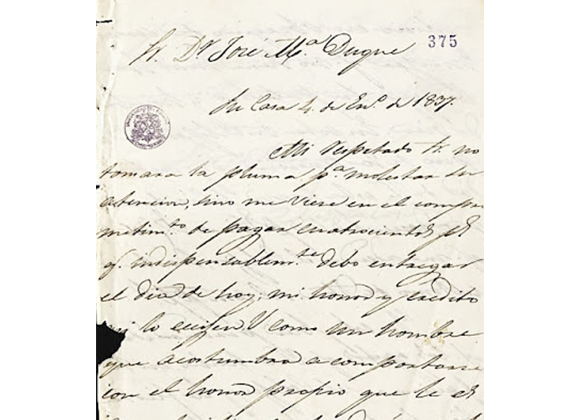 375
Sr. Dn. José Ma. Duque
Su Casa 4 de Eno. de 1837.
Mi respetado Sr. no
tomara la pluma pa. molestar su
atencion, sino me viese en el compro
metimto. de pagar cuatrocientos ps.
q. indispensablemte. debo entregar
el dia de hoy; mi honor y crédito
lo exijen V como un hombre
que acostumbra a comportarse
con el honor propio que le es